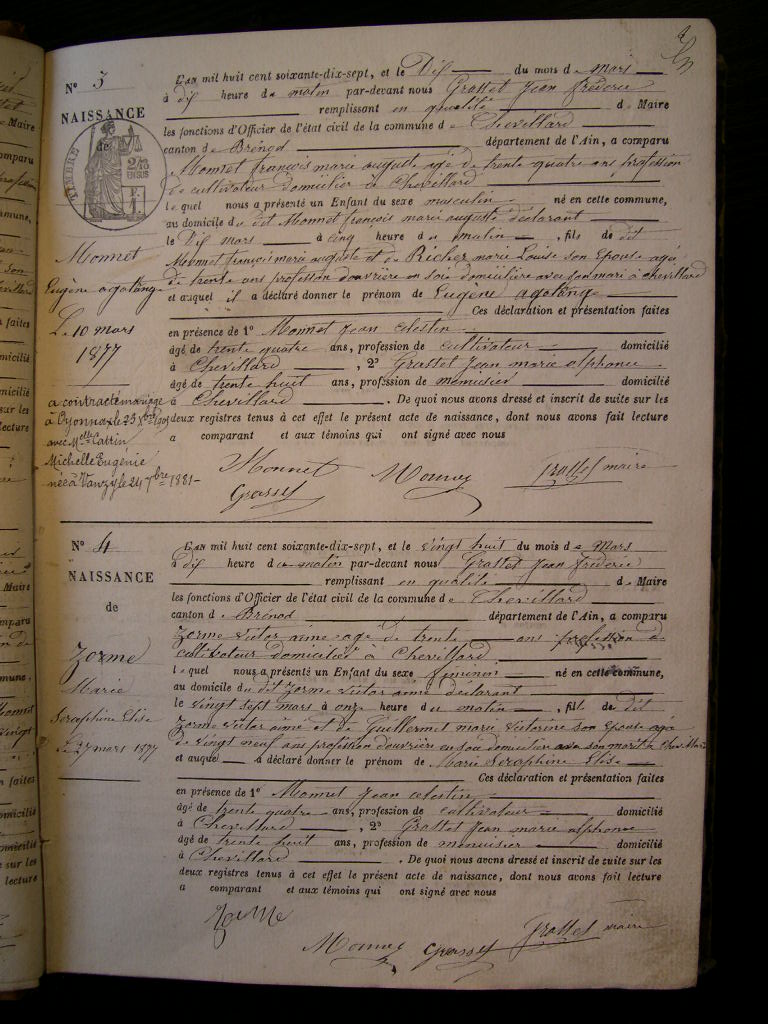 N° 3
NAISSANCE
de
TIMBRE
Monnet
Eugène agatange
Le 10 mars
1877
a contracté mariage
à Oyonnax le 23 Xbre 1905
avec Melle Cattin
Michelle Eugénie
née à Vanzy le 24 7bre 1881-
L'an mil huit cent soixante-dix-sept, et le Dix du mois de Mars
à dix heure du matin par-devant nous Grasset Jean fréderic
remplissant en qualité de Maire
les fonctions d'Officier de l'état civil de la commune de Chevillard
canton de Brénod département de l'Ain, a comparu
Monnet françois marie auguste agé de trente quatre ans profession
de cultivateur domicilier à Chevillard
lequel nous a présenté un Enfant du sexe masculin né en cette commune,
au domicile du dit Monnet françois marie auguste déclarant
le Dix mars à cinq heure du matin, fils de dit
Monnet françois marie auguste et de Richer marie Louise son Epouse agée
de trente ans profession d'ouvrière en soie domicilière avec son mari à chevillard
et auquel il a déclaré donner le prénom de Eugène agatange
Ces déclaration et présentation faites
en présence de 1° Monnet Jean celestin
âgé de trente quatre ans, profession de cultivateur domicilié
à Chevillard, 2° Grasset Jean marie alphonce
âgé de trente huit ans, profession de menuisier domicilié
à Chevillard. De quoi nous avons dressé et inscrit de suite sur les
deux registres tenus à cet effet le présent acte de naissance, dont nous avons fait lecture
a comparant et aux témoins qui ont signé avec nous
Monnet Monnet Grasset maire
Grasset
N° 4
NAISSANCE
de
Zorme
Marie
Seraphine Elise
Le 27 mars 1877
L'an mil huit cent soixante-dix-sept, et le vingt huit du mois de Mars
à dix heure du matin par-devant nous Grasset Jean fréderic
remplissant en qualité de Maire
les fonctions d'Officier de l'état civil de la commune de Chevillard
canton de Brénod département de l'Ain, a comparu
Zorme Victor aimé agé de trente ans profession de
cultivateur domicilier à Chevillard
lequel nous a présenté un Enfant du sexe féminin né en cette commune,
au domicile du dit Zorme Victor aimé déclarant
le vingt sept mars à onze heure du matin, fille de dit
Zorme Victor aimé et de Guillermet marie Victorine son Epouse agée
de vingt neuf ans profession d'ouvrière en soie domicilier avec son mari à Chevillard
et auquel a déclaré donner le prénom de Marie Seraphine Elise
Ces déclaration et présentation faites
en présence de 1° Monnet Jean celestin
âgé de trente quatre ans, profession de cultivateur domicilié
à Chevillard, 2° Grasset Jean marie alphonce
âgé de trente huit ans, profession de menuisier domicilié
à Chevillard. De quoi nous avons dressé et inscrit de suite sur les
deux registres tenus à cet effet le présent acte de naissance, dont nous avons fait lecture
a comparant et aux témoins qui ont signé avec nous
Zorme
Monnet Grasset Grasset maire